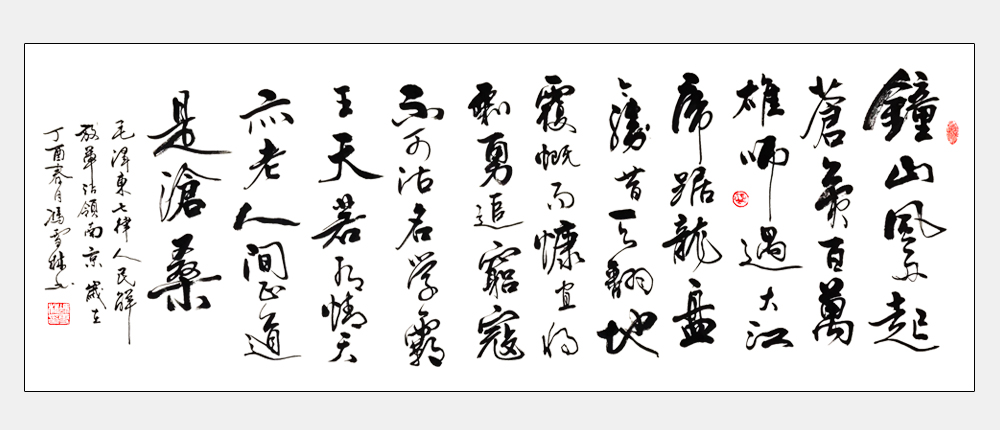 鐘山風雨起
蒼黃百萬
雄師過大江
虎踞龍盤
今勝昔天翻地
覆慨而慷宜將
剩勇追窮寇
不可沽名学霸
王天若有情天
亦老人间正道
是滄桑
毛澤東七律人民解
放軍占領南京歲在
丁酉春月馮雪林书